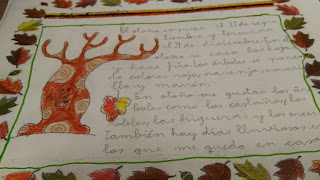 El otoño empieza el 23 de sep
tiembre y termina
el 21 de diciembre. En
otoño se caen las hojas
y hace frío. Los árboles se ponen
de colores: rojo, naranja, amari
llo y marrón.
En otoño me gustan los ár
boles como los castaños, los
robles, las higueras y los
También hay días lluviosos en
los que me quedo en casa